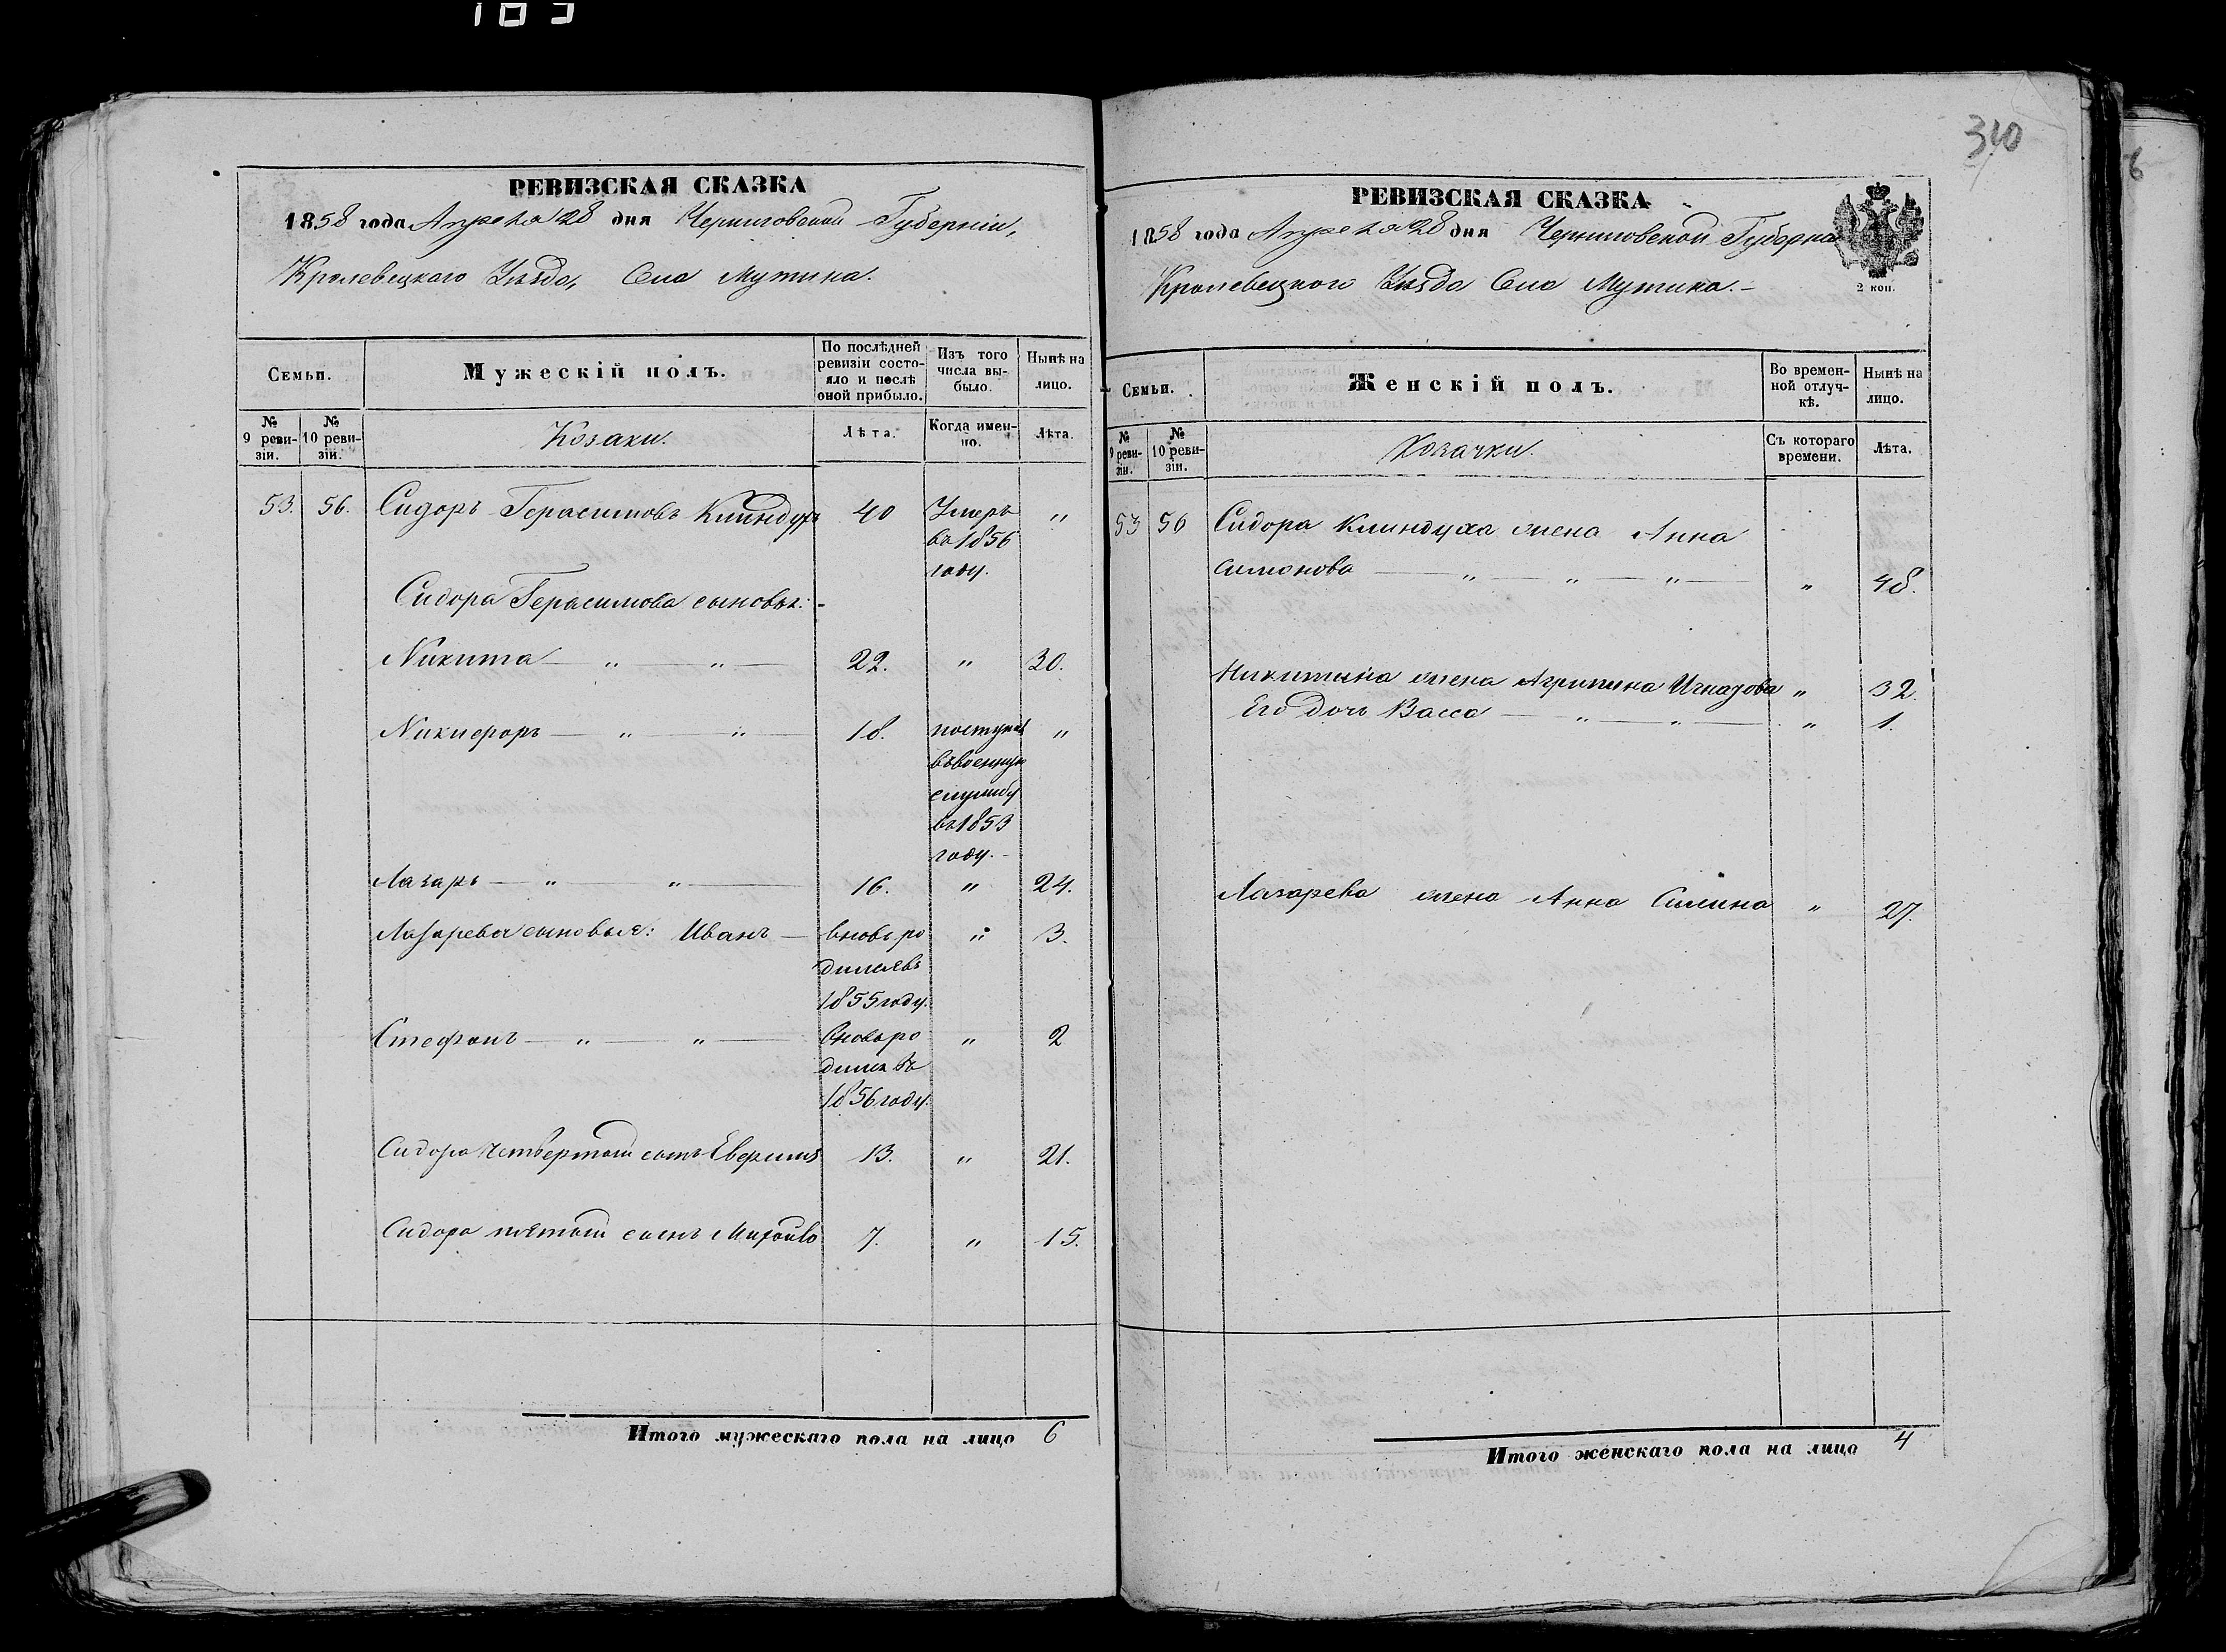 185
РЕВИЗСКАЯ СКАЗКА
1858 года Апреля 28 дня Черниговской Губерніи,
Кролевецкаго Уѣзда, Села Мутина.
Семьи.
Мужескій полъ.
По послѣдней ревизіи состояло и послѣ оной прибыло.
Изъ того числа выбыло.
Нынѣ на лицо.
№ 9 ревизіи.
№ 10 ревизіи.
Козаки.
Лѣта.
Когда именно.
Лѣта.
53. 56. Сидоръ Герасимовъ Клиндухъ 40 Умеръ „
въ 1856
году.
Сидора Герасимова сыновья:-
Никита — „ — „ — 22. „ 30.
Никифоръ — „ — „ — 18. поступилъ „
въ военную
службу
въ 1853
году.-
Лазарь — „ — „ — 16. „ 24.
Лазарева сыновья: Иванъ — вновь ро „ 3.
дился въ
1855 году.
Стефанъ — „ — „ — Вновь ро „ 2
дился въ
1856 году.
Сидора четвертый сынъ 13. „ 21.
Сидора пятый сынъ 7. „ 15.
Итого мужескаго пола на лицо 6
310
РЕВИЗСКАЯ СКАЗКА
1858 года Апреля 28 дня Черниговской Губерніи
Кролевецкаго Уѣзда Села Мутина.-
2 коп.
Семьи.
Женскій полъ.
Во временной отлучкѣ.
Нынѣ на лицо.
№ 9 ревизіи.
№ 10 ревизіи.
Козачки.
Съ котораго времени.
Лѣта.
53 56 Сидора Клиндуха жена Анна
Симонова — „ — „ — „ — „ 48.
Никитина жена Агрипина Игнатова „ 32.
Его дочь Васса — „ — „ — „ 1.
Лазарева жена Анна Силина „ 27.
Итого женскаго пола на лицо 4
6